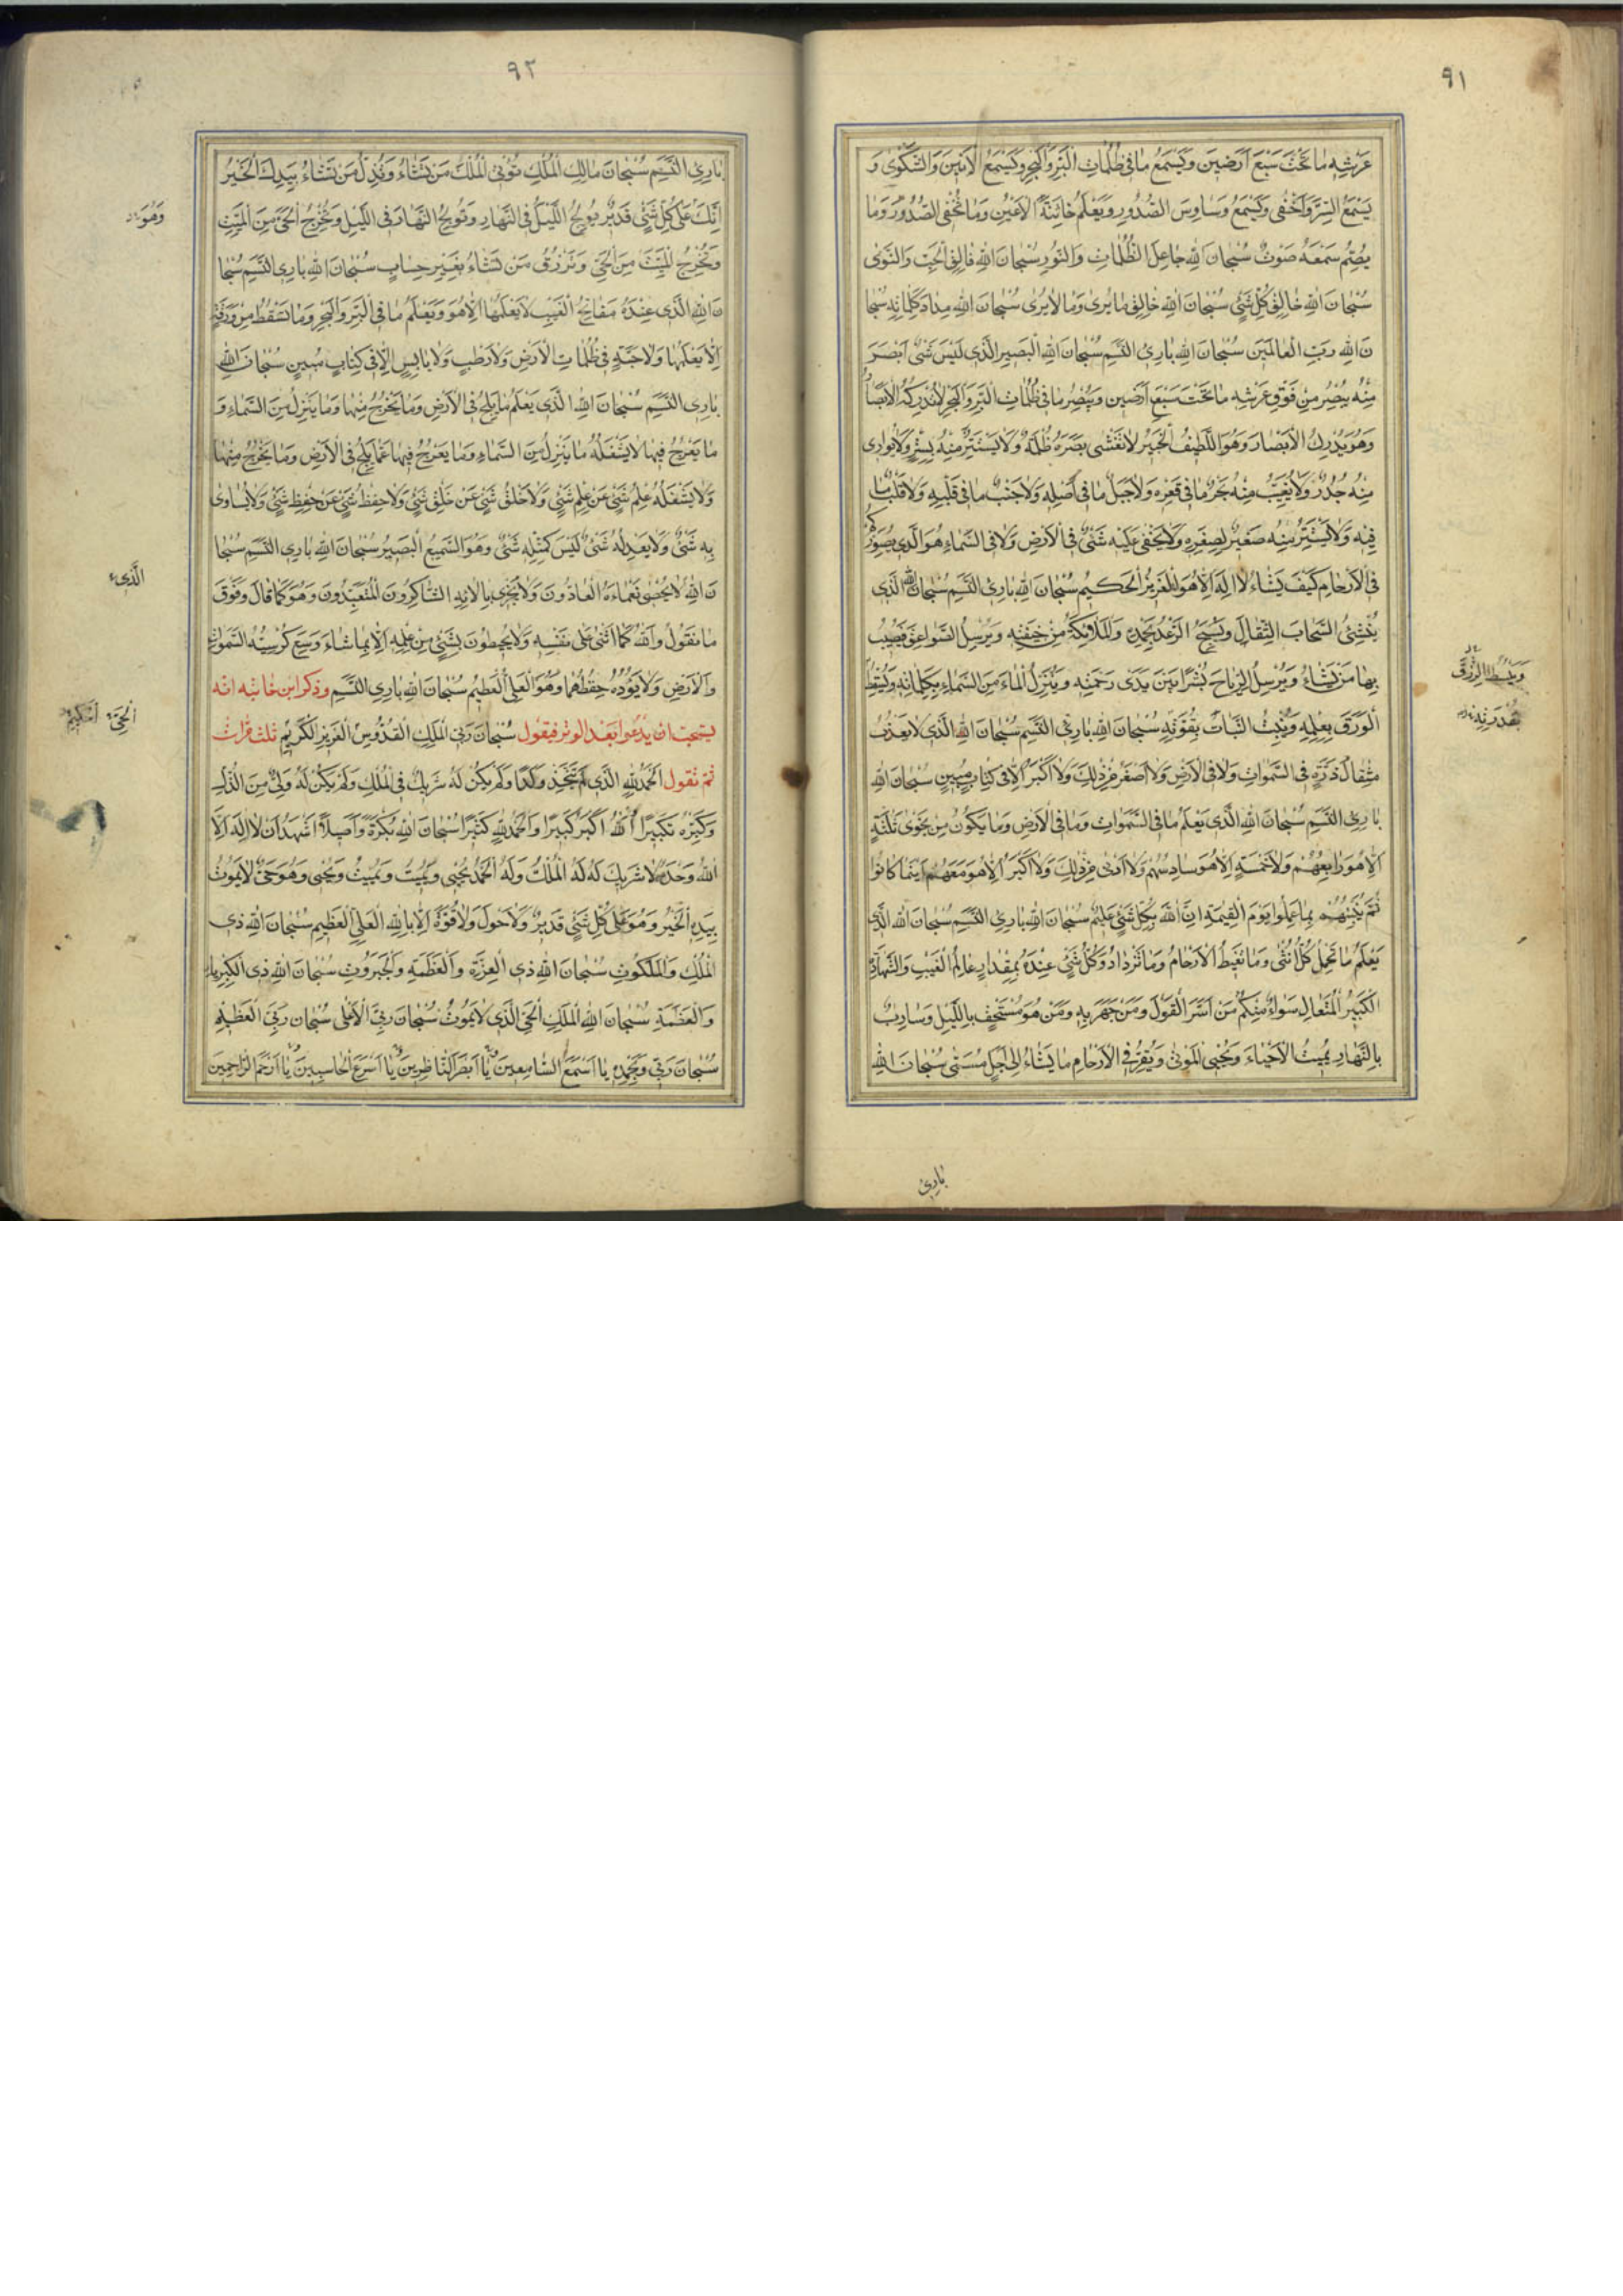 ٩١
عَرْشِهِ مَا تَحْتَ سَبْعِ اَرَضِينَ وَيَسْمَعُ مَا فِي ظُلُمَاتِ الْبَرِّ وَالْبَحْرِ وَيَسْمَعُ الْاَنِينَ وَالشَّكْوٰى وَ
يَسْمَعُ السِّرَّ وَاَخْفٰى وَيَسْمَعُ وَسَاوِسَ الصُّدُورِ وَيَعْلَمُ خَائِنَةَ الْاَعْيُنِ وَمَا تُخْفِي الصُّدُورُ وَمَا
يُصِمُّ سَمْعَهُ صَوْتٌ سُبْحَانَ اللهِ جَاعِلِ الظُّلُمَاتِ وَالنُّورِ سُبْحَانَ اللهِ فَالِقِ الْحَبِّ وَالنَّوٰى
سُبْحَانَ اللهِ خَالِقِ كُلِّ شَيْءٍ سُبْحَانَ اللهِ خَالِقِ مَا يُرٰى وَمَا لَا يُرٰى سُبْحَانَ اللهِ مِدَادَ كَلِمَاتِهِ سُبْحَا
نَ اللهِ رَبِّ الْعَالَمِينَ سُبْحَانَ اللهِ بَارِئِ النَّسَمِ سُبْحَانَ اللهِ الْبَصِيرِ الَّذِي لَيْسَ شَيْءٌ اَبْصَرَ
مِنْهُ يُبْصِرُ مِنْ فَوْقِ عَرْشِهِ مَا تَحْتَ سَبْعِ اَرَضِينَ وَيُبْصِرُ مَا فِي ظُلُمَاتِ الْبَرِّ وَالْبَحْرِ لَا تُدْرِكُهُ الْاَبْصَارُ
وَهُوَ يُدْرِكُ الْاَبْصَارَ وَهُوَ اللَّطِيفُ الْخَبِيرُ لَا تَغْشٰى بَصَرَهُ ظُلْمَةٌ وَلَا يَسْتَتِرُ مِنْهُ بِسِتْرٍ وَلَا يُوَارِي
مِنْهُ جُدُرٌ وَلَا يَغِيبُ مِنْهُ بَحْرٌ مَا فِي قَعْرِهِ وَلَا جَبَلٌ مَا فِي اَصْلِهِ وَلَا جَنْبٌ مَا فِي قَلْبِهِ وَلَا قَلْبٌ مَا
فِيهِ وَلَا يَسْتَتِرُ مِنْهُ صَغِيرٌ لِصِغَرِهِ وَلَا يَخْفٰى عَلَيْهِ شَيْءٌ فِي الْاَرْضِ وَلَا فِي السَّمَاءِ هُوَ الَّذِي يُصَوِّرُكُمْ
فِي الْاَرْحَامِ كَيْفَ يَشَاءُ لَا اِلٰهَ اِلَّا هُوَ الْعَزِيزُ الْحَكِيمُ سُبْحَانَ اللهِ بَارِئِ النَّسَمِ سُبْحَانَ اللهِ الَّذِي
يُنْشِئُ السَّحَابَ الثِّقَالَ وَيُسَبِّحُ الرَّعْدُ بِحَمْدِهِ وَالْمَلَائِكَةُ مِنْ خِيفَتِهِ وَيُرْسِلُ الصَّوَاعِقَ فَيُصِيبُ
بِهَا مَنْ يَشَاءُ وَيُرْسِلُ الرِّيَاحَ بُشْرًا بَيْنَ يَدَيْ رَحْمَتِهِ وَيُنَزِّلُ الْمَاءَ مِنَ السَّمَاءِ بِكَلِمَاتِهِ وَيُسْقِطُ
وَيَبْسُطُ الرِّزْقَ
بِقُدْرَتِهِ
الْوَرَقَ بِعِلْمِهِ وَيُنْبِتُ النَّبَاتَ بِقُوَّتِهِ سُبْحَانَ اللهِ بَارِئِ النَّسَمِ سُبْحَانَ اللهِ الَّذِي لَا يَعْزُبُ
مِثْقَالُ ذَرَّةٍ فِي السَّمٰوَاتِ وَلَا فِي الْاَرْضِ وَلَا اَصْغَرُ مِنْ ذٰلِكَ وَلَا اَكْبَرُ اِلَّا فِي كِتَابٍ مُبِينٍ سُبْحَانَ اللهِ
بَارِئِ النَّسَمِ سُبْحَانَ اللهِ الَّذِي يَعْلَمُ مَا فِي السَّمٰوَاتِ وَمَا فِي الْاَرْضِ وَمَا يَكُونُ مِنْ نَجْوٰى ثَلٰثَةٍ
اِلَّا هُوَ رَابِعُهُمْ وَلَا خَمْسَةٍ اِلَّا هُوَ سَادِسُهُمْ وَلَا اَدْنٰى مِنْ ذٰلِكَ وَلَا اَكْبَرَ اِلَّا هُوَ مَعَهُمْ اَيْنَمَا كَانُوا
ثُمَّ يُنَبِّئُهُمْ بِمَا عَمِلُوا يَوْمَ الْقِيٰمَةِ اِنَّ اللهَ بِكُلِّ شَيْءٍ عَلِيمٌ سُبْحَانَ اللهِ بَارِئِ النَّسَمِ سُبْحَانَ اللهِ الَّذِي
يَعْلَمُ مَا تَحْمِلُ كُلُّ اُنْثٰى وَمَا تَغِيضُ الْاَرْحَامُ وَمَا تَزْدَادُ وَكُلُّ شَيْءٍ عِنْدَهُ بِمِقْدَارٍ عَالِمُ الْغَيْبِ وَالشَّهَادَةِ
الْكَبِيرُ الْمُتَعَالِ سَوَاءٌ مِنْكُمْ مَنْ اَسَرَّ الْقَوْلَ وَمَنْ جَهَرَ بِهِ وَمَنْ هُوَ مُسْتَخْفٍ بِاللَّيْلِ وَسَارِبٌ
بِالنَّهَارِ يُمِيتُ الْاَحْيَاءَ وَيُحْيِي الْمَوْتٰى وَيُقِرُّ فِي الْاَرْحَامِ مَا يَشَاءُ اِلٰى اَجَلٍ مُسَمًّى سُبْحَانَ اللهِ
بَارِئِ
٩٢
بَارِئِ النَّسَمِ سُبْحَانَ مَالِكِ الْمُلْكِ تُؤْتِي الْمُلْكَ مَنْ تَشَاءُ وَتُذِلُّ مَنْ تَشَاءُ بِيَدِكَ الْخَيْرُ
اِنَّكَ عَلٰى كُلِّ شَيْءٍ قَدِيرٌ يُولِجُ اللَّيْلَ فِي النَّهَارِ وَتُولِجُ النَّهَارَ فِي اللَّيْلِ وَتُخْرِجُ الْحَيَّ مِنَ الْمَيِّتِ
وَهُوَ
وَتُخْرِجُ الْمَيِّتَ مِنَ الْحَيِّ وَتَرْزُقُ مَنْ تَشَاءُ بِغَيْرِ حِسَابٍ سُبْحَانَ اللهِ بَارِئِ النَّسَمِ سُبْحَا
نَ اللهِ الَّذِي عِنْدَهُ مَفَاتِحُ الْغَيْبِ لَا يَعْلَمُهَا اِلَّا هُوَ وَيَعْلَمُ مَا فِي الْبَرِّ وَالْبَحْرِ وَمَا تَسْقُطُ مِنْ وَرَقَةٍ
اِلَّا يَعْلَمُهَا وَلَا حَبَّةٍ فِي ظُلُمَاتِ الْاَرْضِ وَلَا رَطْبٍ وَلَا يَابِسٍ اِلَّا فِي كِتَابٍ مُبِينٍ سُبْحَانَ اللهِ
بَارِئِ النَّسَمِ سُبْحَانَ اللهِ الَّذِي يَعْلَمُ مَا يَلِجُ فِي الْاَرْضِ وَمَا يَخْرُجُ مِنْهَا وَمَا يَنْزِلُ مِنَ السَّمَاءِ وَ
مَا يَعْرُجُ فِيهَا لَا يَشْغَلُهُ مَا يَنْزِلُ مِنَ السَّمَاءِ وَمَا يَعْرُجُ فِيهَا عَمَّا يَلِجُ فِي الْاَرْضِ وَمَا يَخْرُجُ مِنْهَا
وَلَا يَشْغَلُهُ عِلْمُ شَيْءٍ عَنْ عِلْمِ شَيْءٍ وَلَا خَلْقُ شَيْءٍ عَنْ خَلْقِ شَيْءٍ وَلَا حِفْظُ شَيْءٍ عَنْ حِفْظِ شَيْءٍ وَلَا يُسَاوِي
بِهِ شَيْءٌ وَلَا يَعْدِلُهُ شَيْءٌ لَيْسَ كَمِثْلِهِ شَيْءٌ وَهُوَ السَّمِيعُ الْبَصِيرُ سُبْحَانَ اللهِ بَارِئِ النَّسَمِ سُبْحَا
الَّذِي
نَ اللهِ لَا يُحْصِي نَعْمَاءَهُ الْعَادُّونَ وَلَا يَجْزِي بِآلَائِهِ الشَّاكِرُونَ الْمُتَعَبِّدُونَ وَهُوَ كَمَا قَالَ وَفَوْقَ
مَا نَقُولُ وَاللهُ كَمَا اَثْنٰى عَلٰى نَفْسِهِ وَلَا يُحِيطُونَ بِشَيْءٍ مِنْ عِلْمِهِ اِلَّا بِمَا شَاءَ وَسِعَ كُرْسِيُّهُ السَّمٰوَاتِ
وَالْاَرْضَ وَلَا يَؤُدُهُ حِفْظُهُمَا وَهُوَ الْعَلِيُّ الْعَظِيمُ سُبْحَانَ اللهِ بَارِئِ النَّسَمِ وذكر ابن خانبه انه
يستحب ان يدعوا بعد الوتر فيقول سُبْحَانَ رَبِّيَ الْمَلِكِ الْقُدُّوسِ الْعَزِيزِ الْكَرِيمِ ثلث مرات
الْحَيِّ الْحَكِيمِ
ثم تقول اَلْحَمْدُ لِلّٰهِ الَّذِي لَمْ يَتَّخِذْ وَلَدًا وَلَمْ يَكُنْ لَهُ شَرِيكٌ فِي الْمُلْكِ وَلَمْ يَكُنْ لَهُ وَلِيٌّ مِنَ الذُّلِّ
وَكَبِّرْهُ تَكْبِيرًا اَللهُ اَكْبَرُ كَبِيرًا وَالْحَمْدُ لِلّٰهِ كَثِيرًا سُبْحَانَ اللهِ بُكْرَةً وَاَصِيلًا اَشْهَدُ اَنْ لَا اِلٰهَ اِلَّا
اللهُ وَحْدَهُ لَا شَرِيكَ لَهُ لَهُ الْمُلْكُ وَلَهُ الْحَمْدُ يُحْيِي وَيُمِيتُ وَيُمِيتُ وَيُحْيِي وَهُوَ حَيٌّ لَا يَمُوتُ
بِيَدِهِ الْخَيْرُ وَهُوَ عَلٰى كُلِّ شَيْءٍ قَدِيرٌ وَلَا حَوْلَ وَلَا قُوَّةَ اِلَّا بِاللهِ الْعَلِيِّ الْعَظِيمِ سُبْحَانَ اللهِ ذِي
الْمُلْكِ وَالْمَلَكُوتِ سُبْحَانَ اللهِ ذِي الْعِزَّةِ وَالْعَظَمَةِ وَالْجَبَرُوتِ سُبْحَانَ اللهِ ذِي الْكِبْرِيَاءِ
وَالْعَظَمَةِ سُبْحَانَ اللهِ الْمَلِكِ الْحَيِّ الَّذِي لَا يَمُوتُ سُبْحَانَ رَبِّيَ الْاَعْلٰى سُبْحَانَ رَبِّيَ الْعَظِيمِ
سُبْحَانَ رَبِّي وَبِحَمْدِهِ يَا اَسْمَعَ السَّامِعِينَ يَا اَبْصَرَ النَّاظِرِينَ يَا اَسْرَعَ الْحَاسِبِينَ يَا اَرْحَمَ الرَّاحِمِينَ